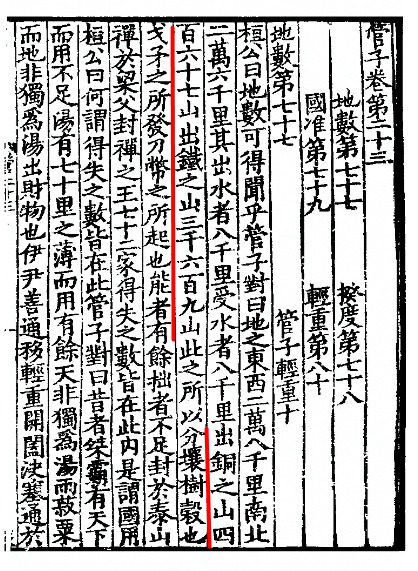 管子卷第二十三
地數第七十七　揆度第七十八
國准第七十九　輕重第八十
地數第七十七　管子輕重十
桓公曰地數可得聞乎管子對曰地之東西二萬八千里南北
二萬六千里其出水者八千里受水者八千里出銅之山四
百六十七山出鐵之山三千六百九山此之所以分壤樹穀也
戈矛之所發刀幣之所起也能者有餘拙者不足封於泰山
禪於梁父封禪之王七十二家得失之數皆在此內是謂國用
桓公曰何謂得失之數皆在此管子對曰昔者桀霸有天下
而用不足湯有七十里之薄而用有餘天非獨爲湯雨菽粟
而地非獨爲湯出財物也伊尹善通移輕重開闔決塞通於